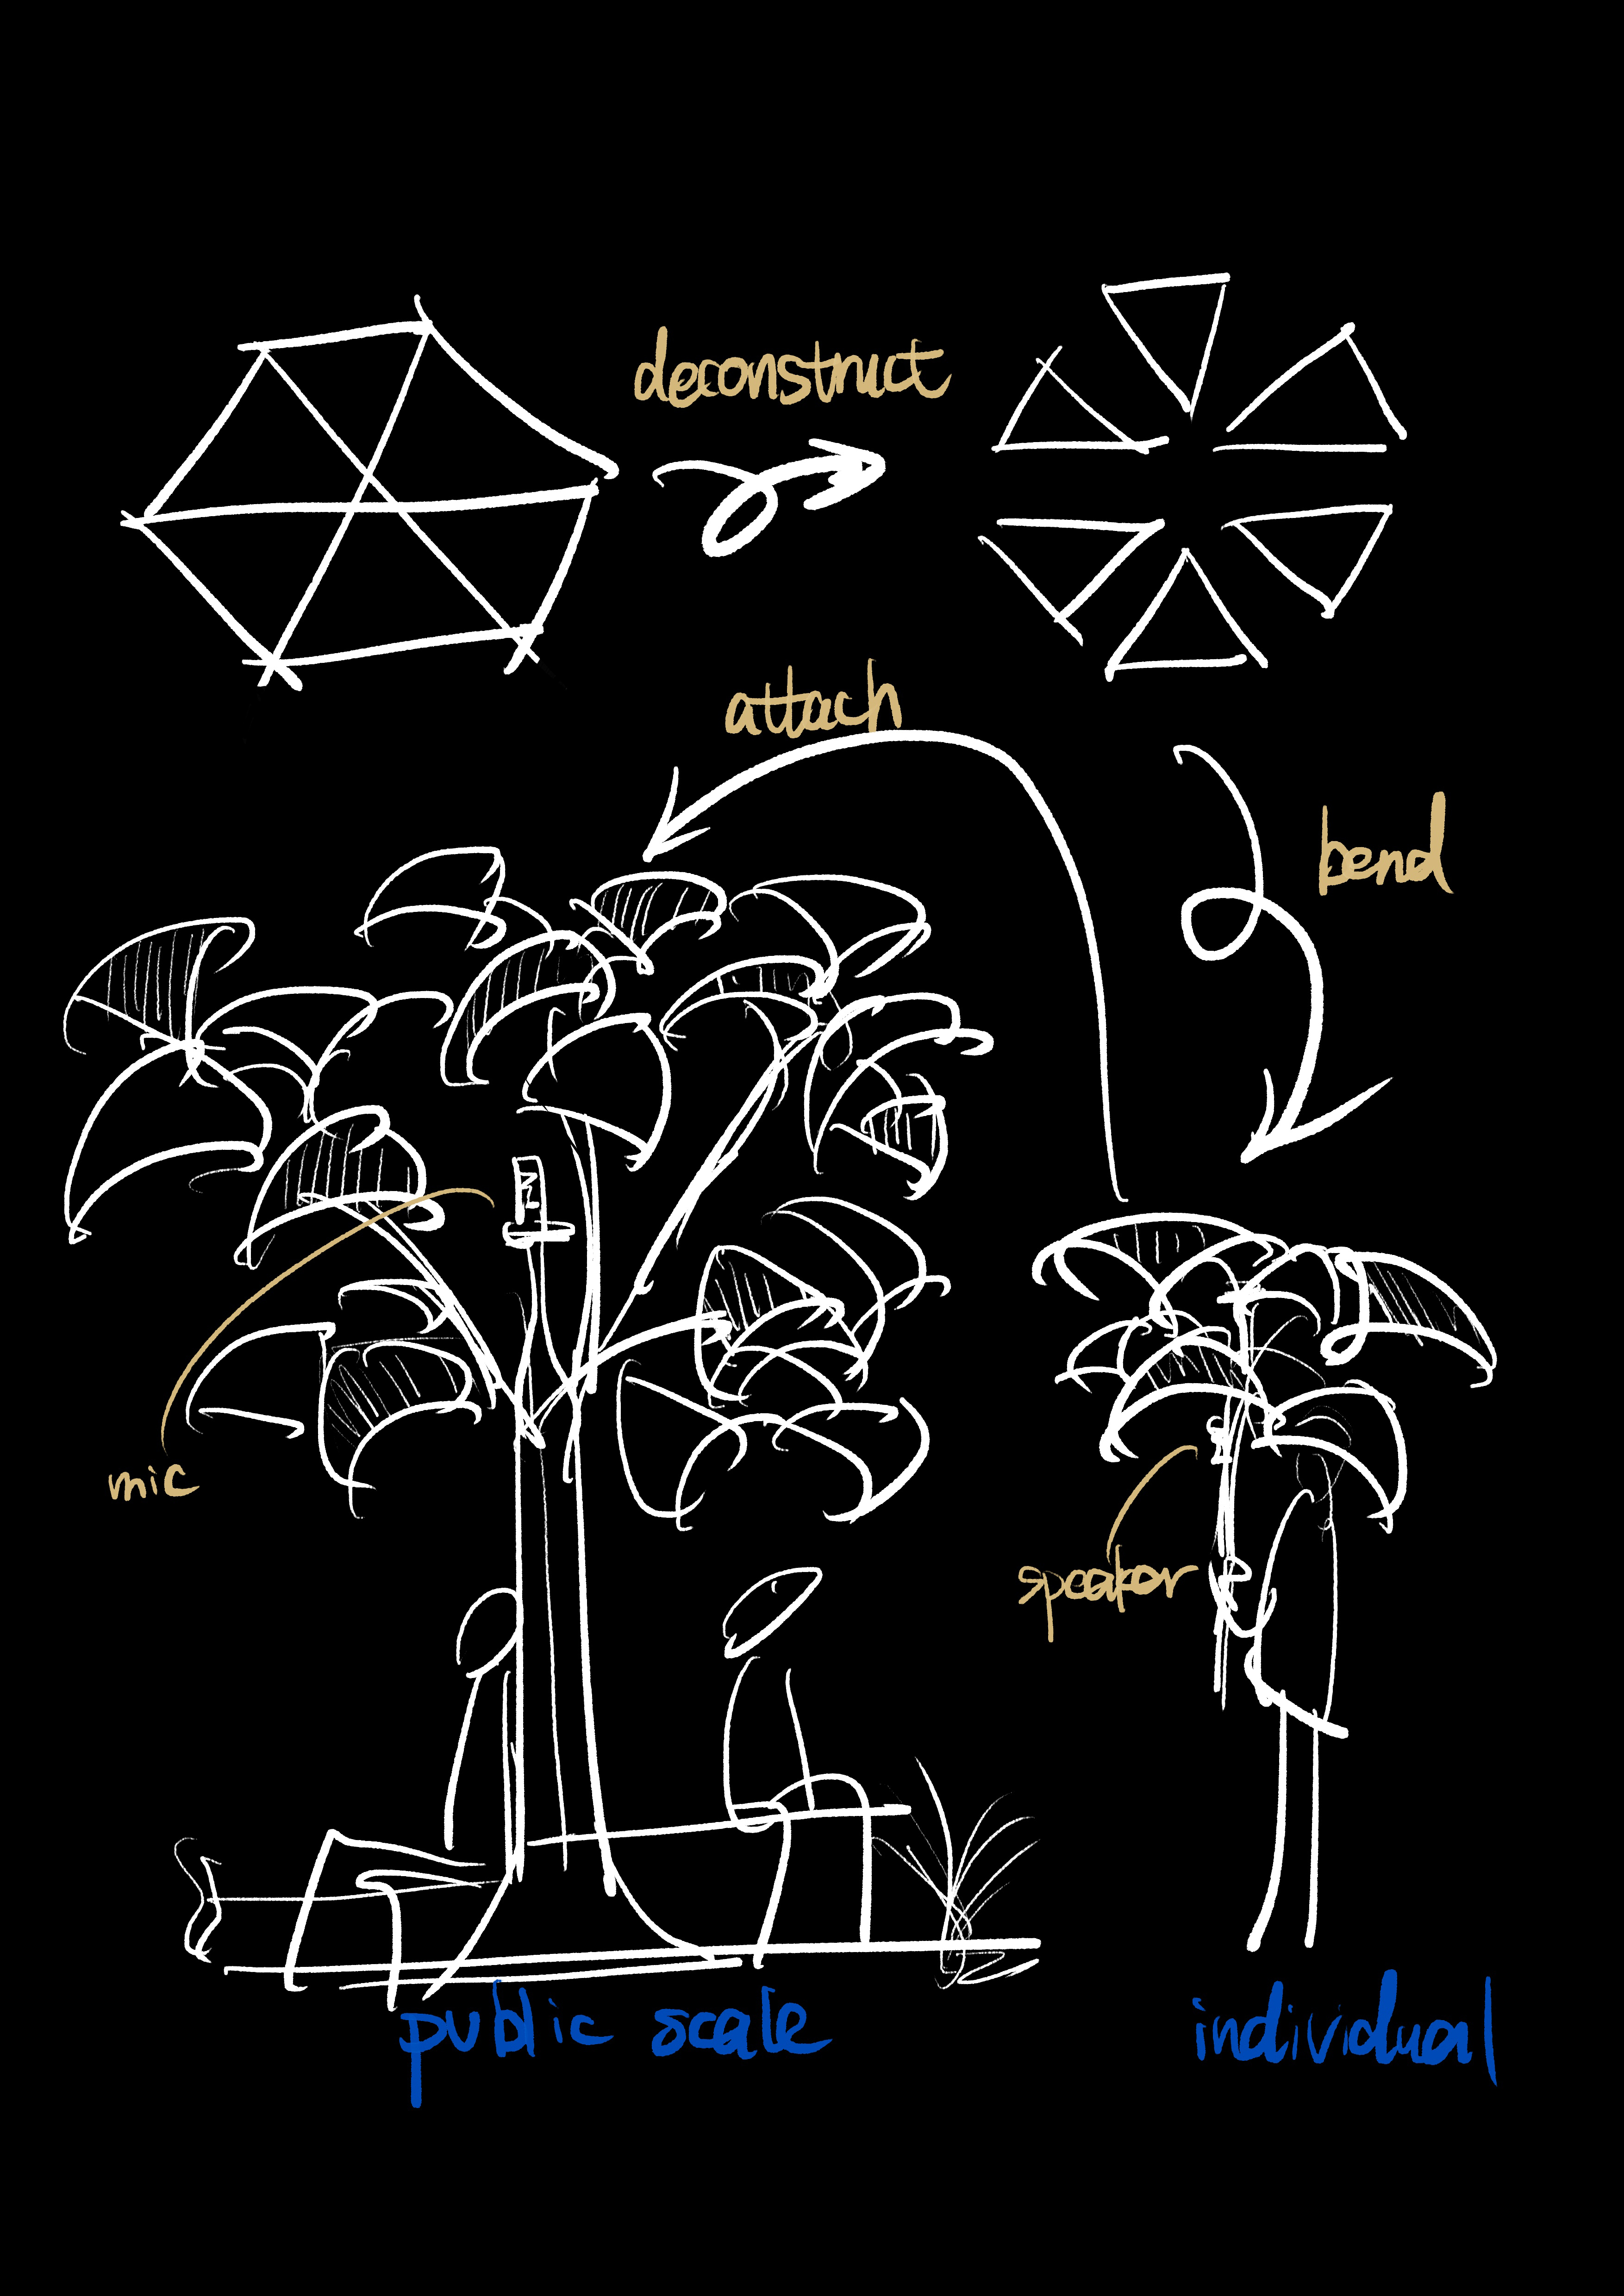 deconstruct
attach
bend
mic
speaker
public scale
individual